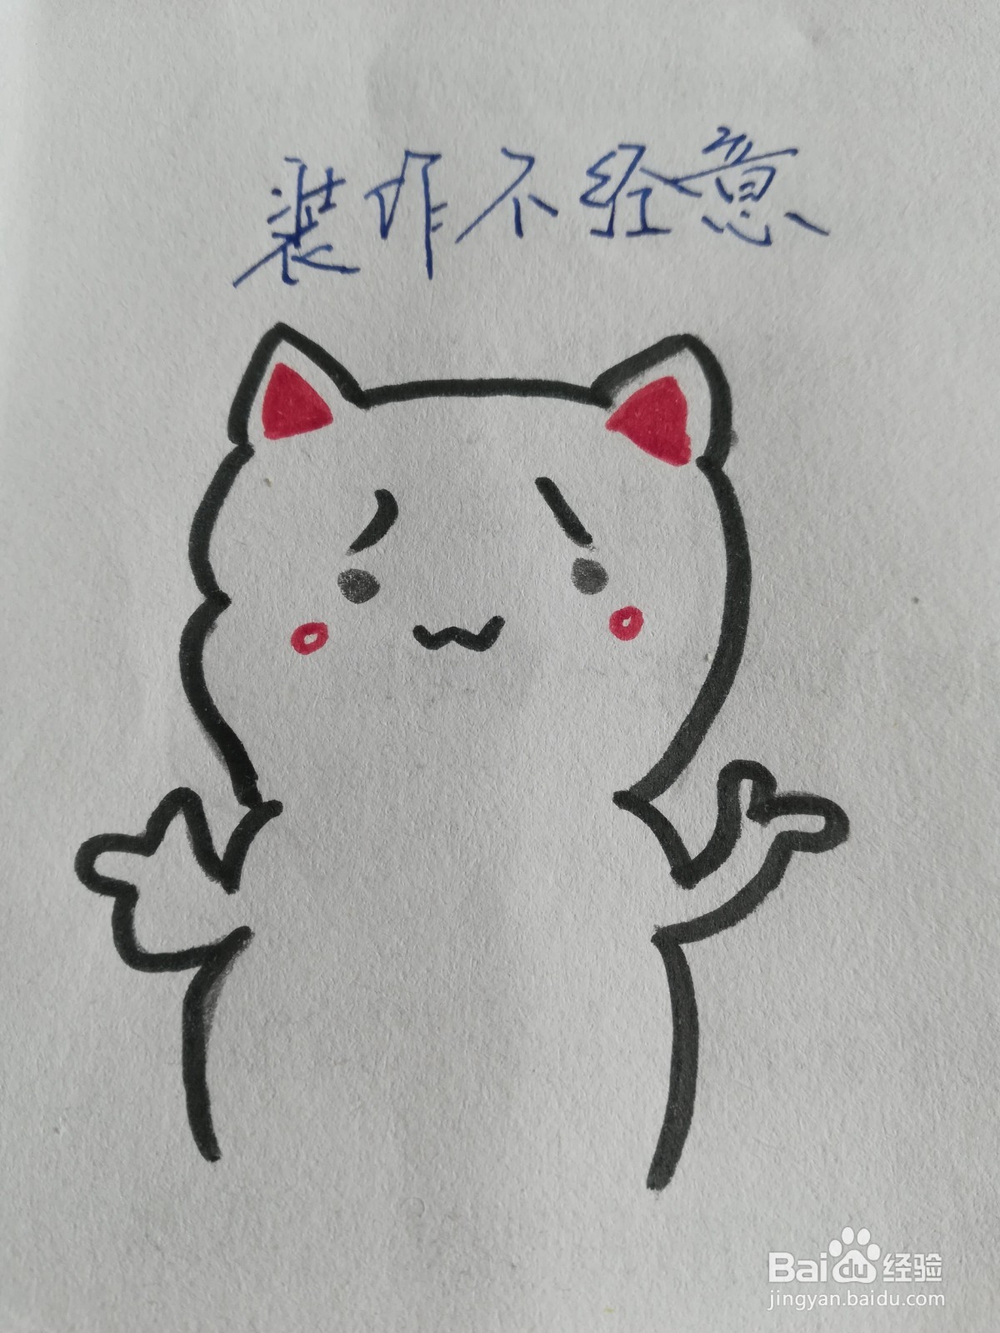 装作不经意
Baidu经验
jingyan.baidu.com